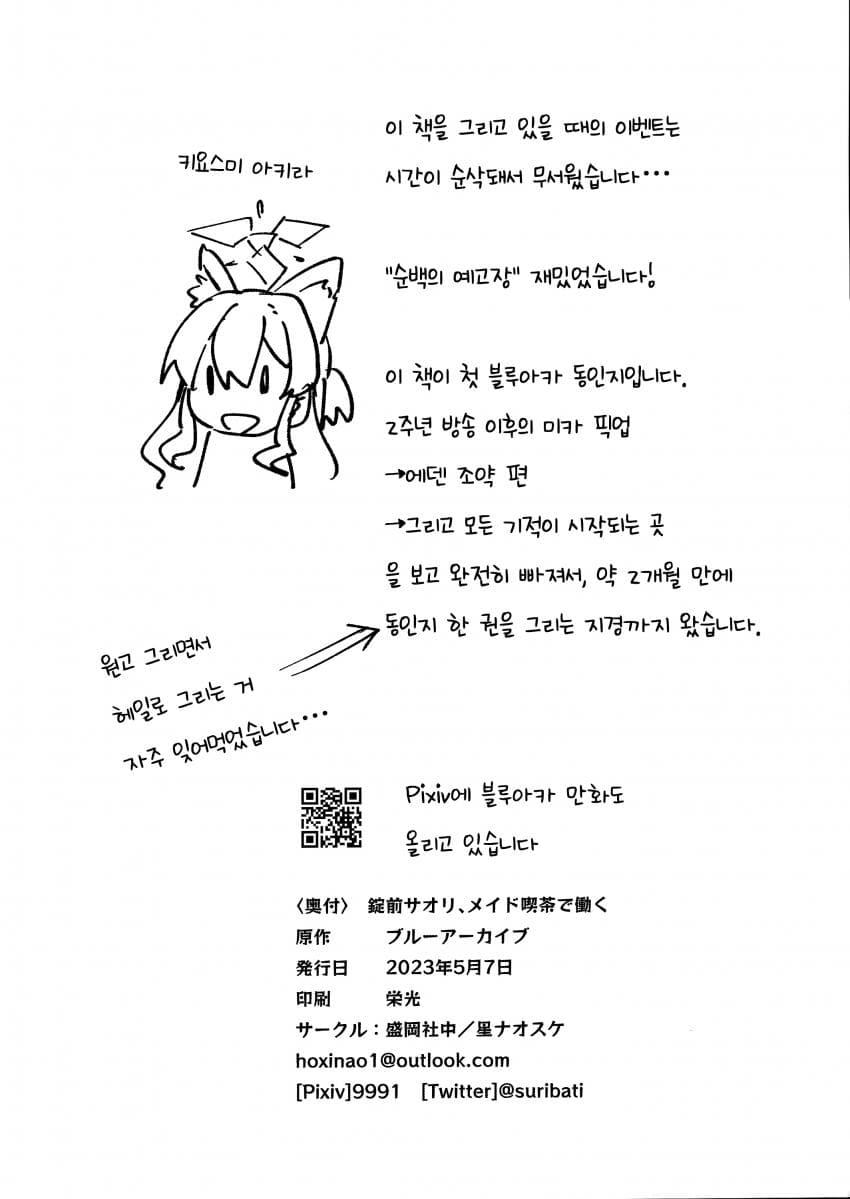 키요스미 아키라
이 책을 그리고 있을 때의 이벤트는
시간이 순삭돼서 무서웠습니다···
"순백의 예고장" 재밌었습니다!
이 책이 첫 블루아카 동인지입니다.
2주년 방송 이후의 미카 픽업
→에덴 조약 편
→그리고 모든 기적이 시작되는 곳
을 보고 완전히 빠져서, 약 2개월 만에
동인지 한 권을 그리는 지경까지 왔습니다.
원고 그리면서
헤일로 그리는 거
자주 잊어먹었습니다···
Pixiv에 블루아카 만화도
올리고 있습니다
〈奥付〉 錠前サオリ、メイド喫茶で働く
原作 ブルーアーカイブ
発行日 2023年5月7日
印刷 栄光
サークル：盛岡社中／星ナオスケ
hoxinao1@outlook.com
[Pixiv]9991 [Twitter]@suribati